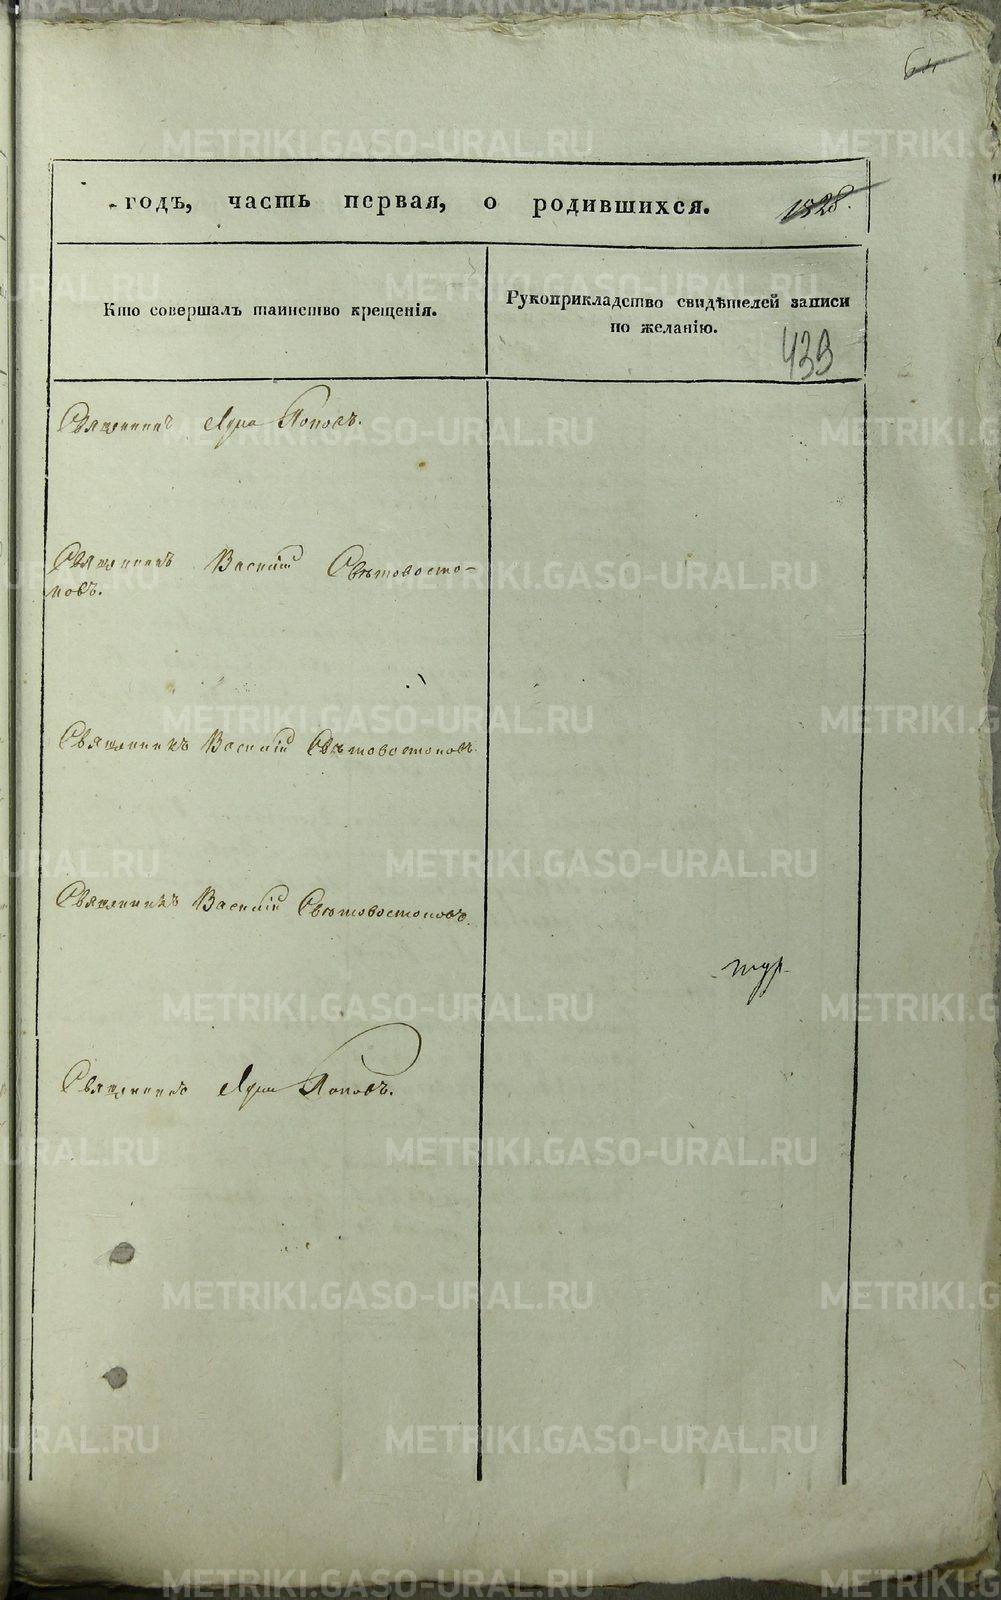 годъ, часть первая, о родившихся.
1828.
Кто совершалъ таинство крещенія.
Рукоприкладство свидѣтелей записи
по желанію.
439
Священникъ Попов.
Священникъ Василій Свѣтовосто-
ковъ.
Священникъ Василій Свѣтовостоковъ
Священникъ Василій Свѣтовостоковъ.
Священникъ Поповъ.
METRIKI.GASO-URAL.RU